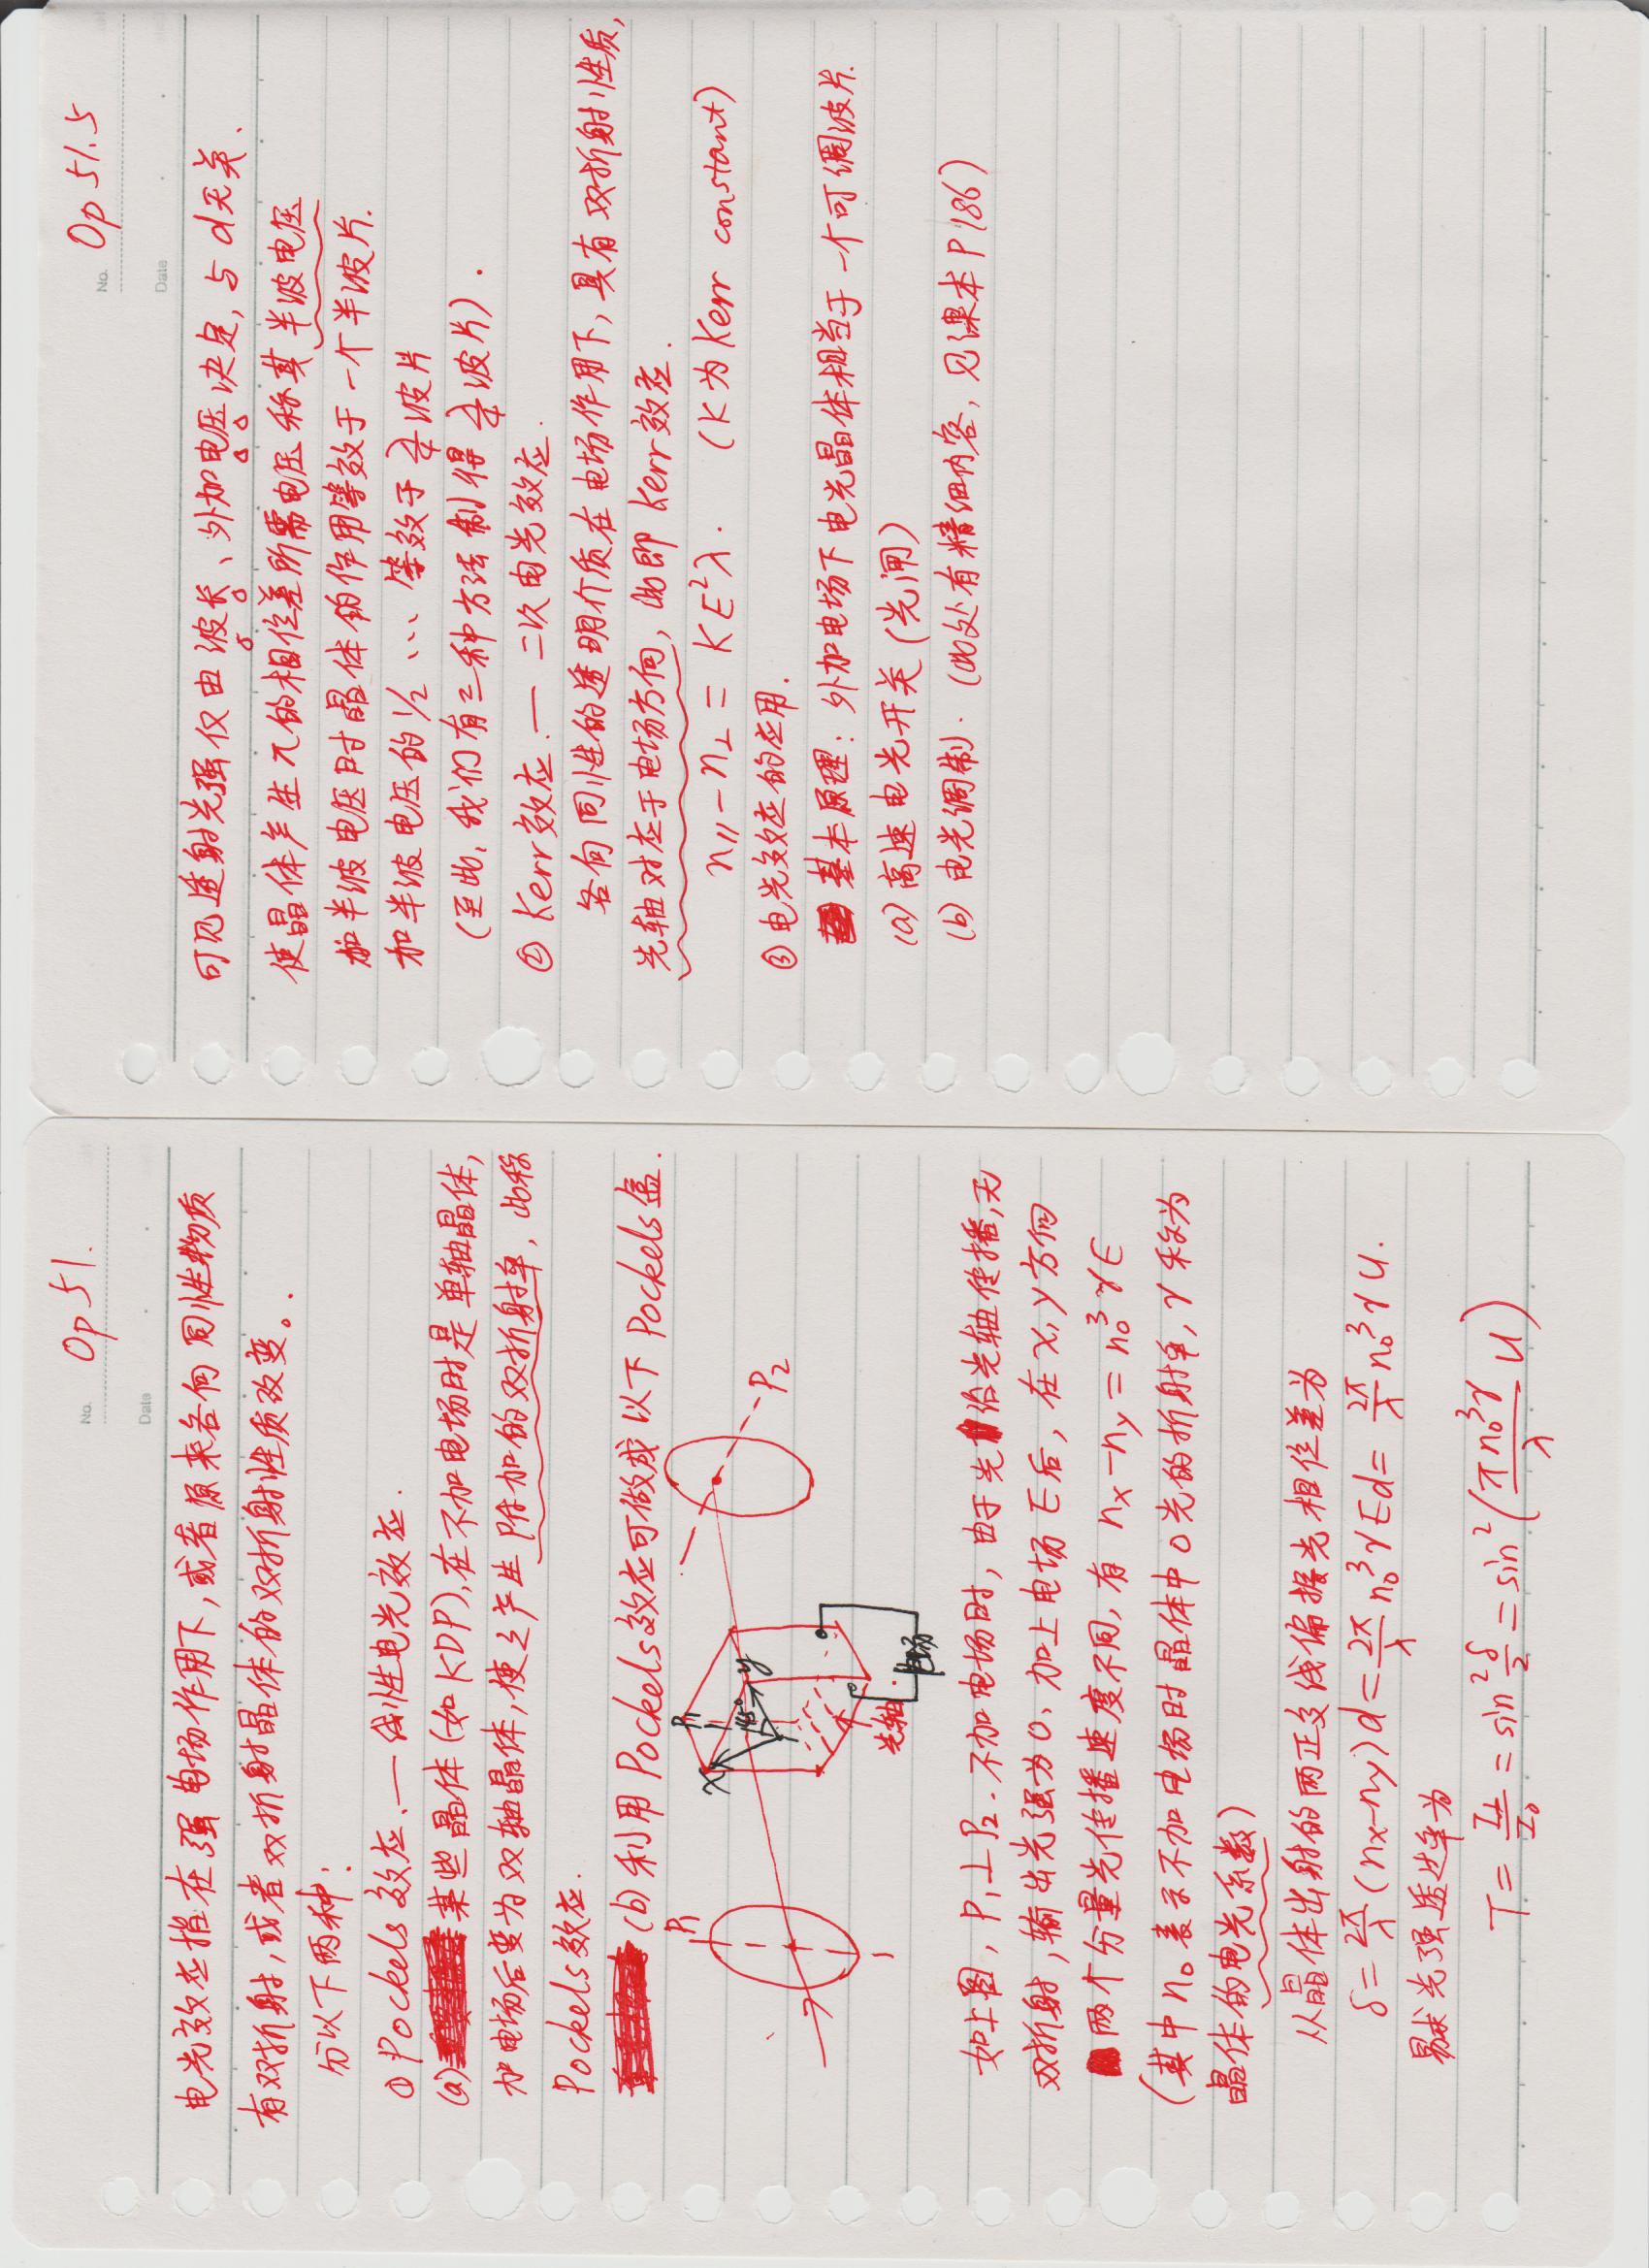 No. Op 51.
Date
电光效应指在强电场作用下,或者原来各向同性物质
有双折射,或者双折射晶体的双折射性质改变。.
分以下两种:
① Pockels 效应.— 线性电光效应.
(a) 某些晶体(如KDP),在不加电场时是单轴晶体,
加电场后变为双轴晶体,使之产生附加的双折射率,此称
Pockels效应.
(b) 利用 Pockels效应可做成以下 Pockels盒.
P₁
P₁
x
45°
y
P₂
光轴
电场
如上图, P₁⊥P₂. 不加电场时, 由于光沿光轴传播,无
双折射,输出光强为0. 加上电场E后, 在x,y方向
两个分量光传播速度不同, 有 nx-ny=n₀³γE
(其中n₀表示不加电场时晶体中o光的折射率, γ称为
晶体的电光系数)
从晶体出射的两正交线偏振光相位差为
δ=2π/λ(nx-ny)d=2π/λ n₀³γEd=2π/λ n₀³γU.
易求光强透过率为
T=I⊥/I₀=sin²δ/2=sin²(πn₀³γ/λ U)
No. Op 51.5
Date
可见透射光强仅由波长、外加电压决定, 与d无关.
使晶体产生π的相位差所需电压称其半波电压
加半波电压时晶体的作用等效于一个半波片.
加半波电压的1/2 … 等效于λ/4波片
(至此, 我们有三种方法制得λ/4波片).
② Kerr效应.— 二次电光效应.
各向同性的透明介质在电场作用下, 具有双折射性质,
光轴对应于电场方向, 此即Kerr效应.
n∥-n⊥=KE²λ. (K为Kerr constant)
③ 电光效应的应用.
基本原理: 外加电场下电光晶体相当于一个可调波片.
(a) 高速电光开关(光闸)
(b) 电光调制. (此处有精细内容, 见课本P186)